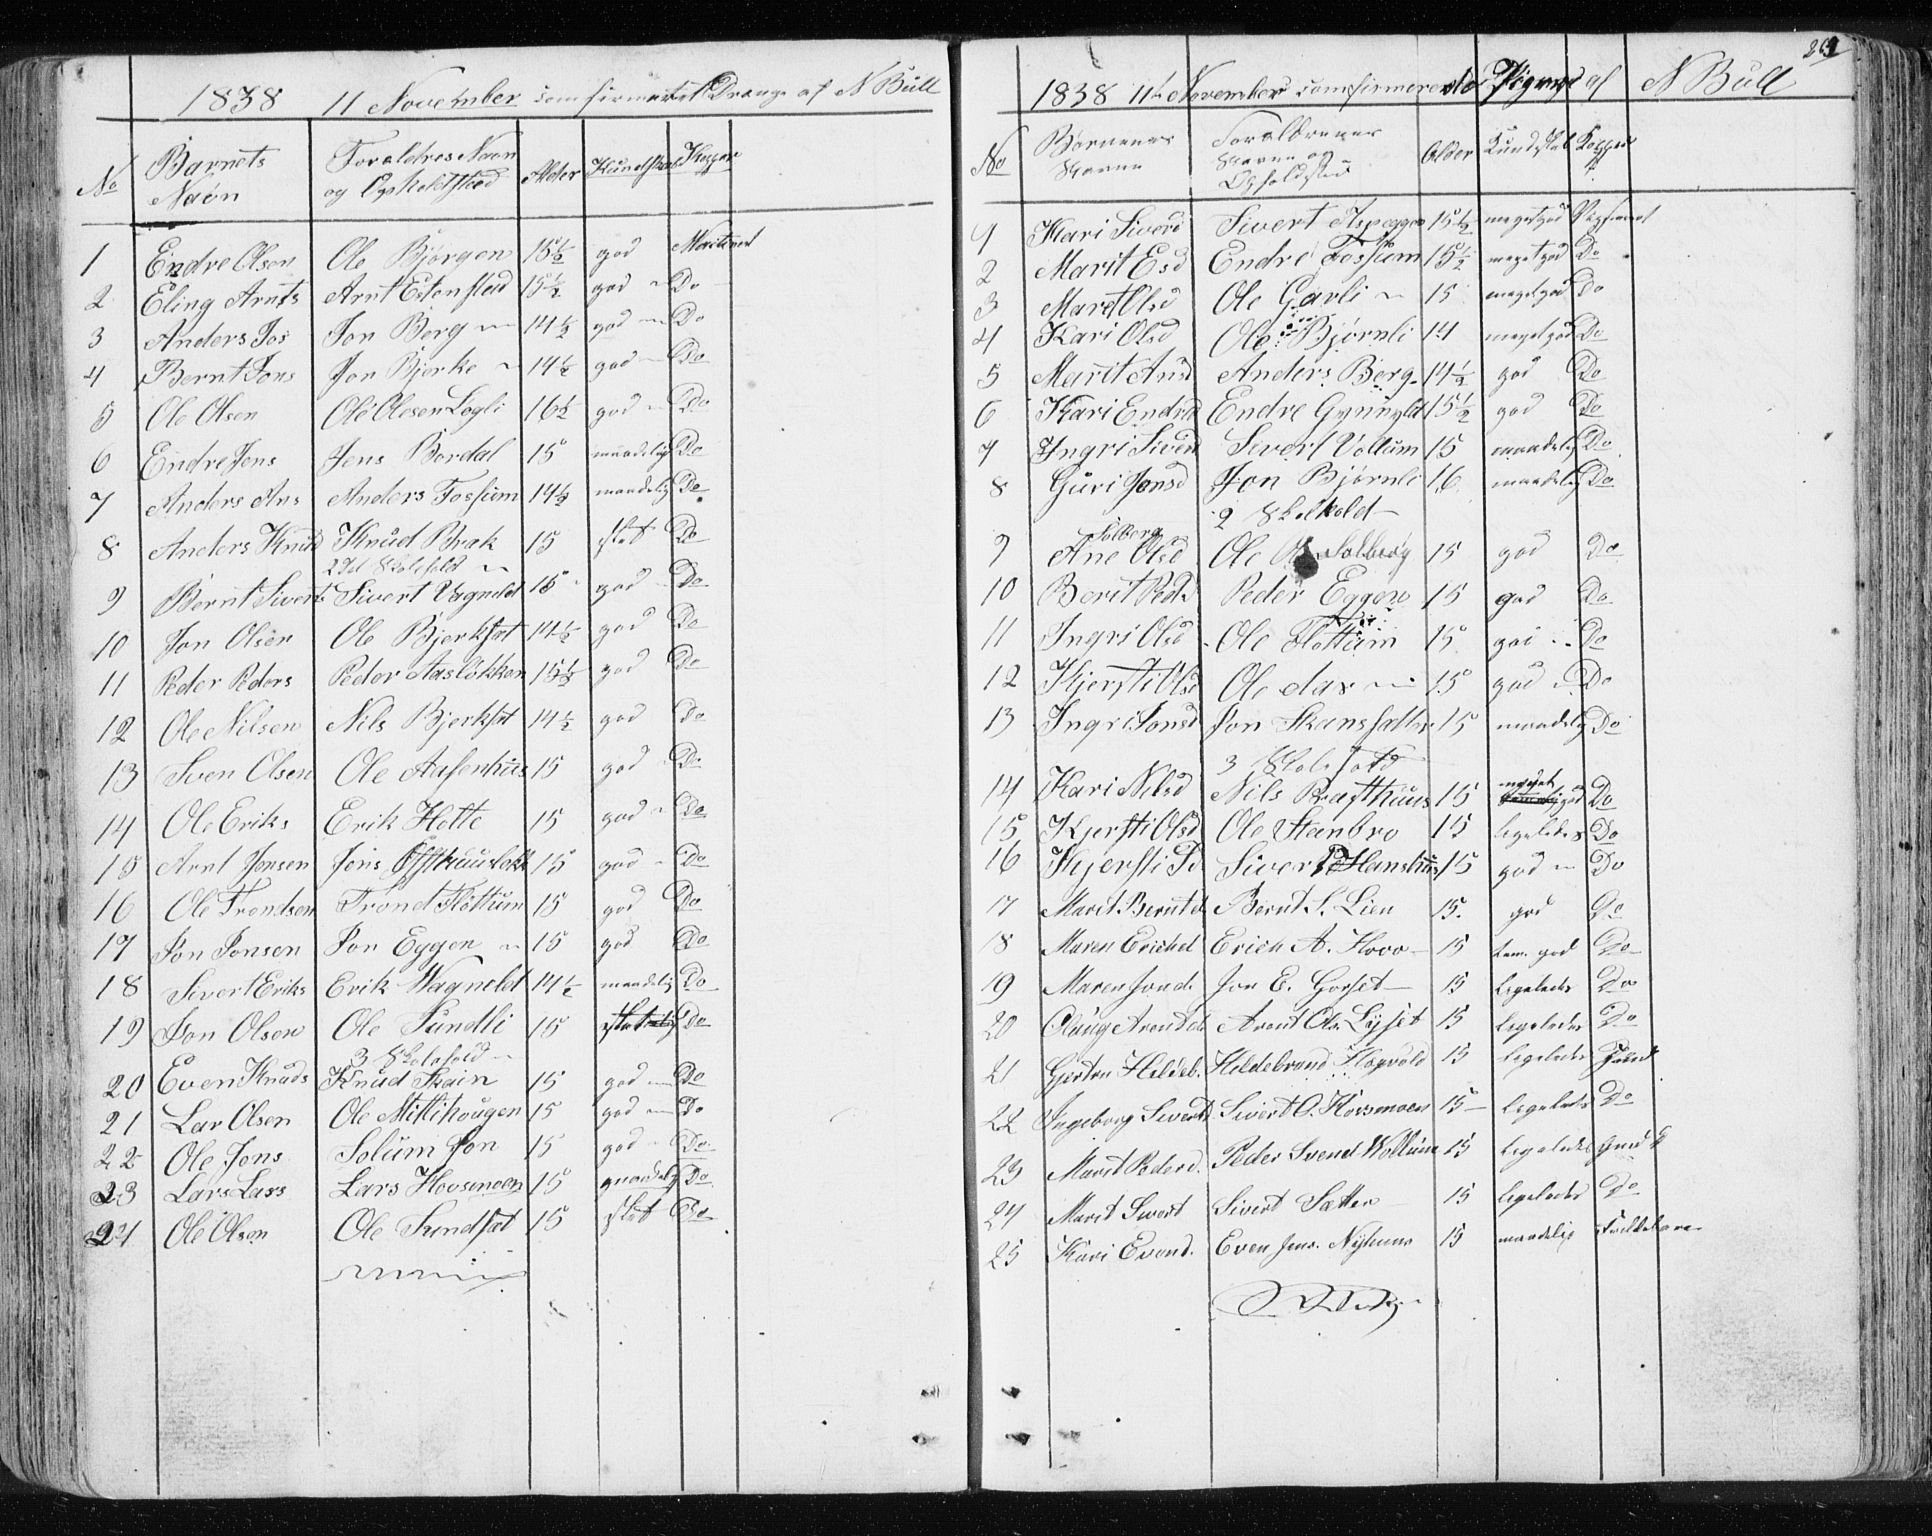 1838 11 November comfirmeret Drenge af N Büll
No Barnets Naøn Forældres Naøn og Opholdsted Alder Kundskab Kopper
1 Endre Olsen Ole Bjørgen 15½ god
2 Eling Arnts Arnt Estenstad 15½ god Do
3 Anders Jos Jon Berg 14½ god Do
4 Bernt Jons Jon Bjerke 14½ god Do
5 Ole Olsen Ole Olesen Løgli 16½ god Do
6 Endre Jens Jens Bordal 15 maadelig Do
7 Anders Ans Anders Fossum 14½ maadelig Do
8 Anders Knud Knud Brak 15 slet Do
9 Bernt Siverts Sivert Vagneld 15 god Do
10 Jon Olsen Ole Bjerksæt 14½ god Do
11 Peder Peders Peder Aasløkken 15½ god Do
12 Ole Nilsen Nils Bjerksæt 14½ god Do
13 Sven Olsen Ole Aasenhus 15 god Do
14 Ole Eriks Erik Hette 15 god Do
15 Arnt Jensen Jens 15 god Do
16 Ole Trondsen Trond Fløttum 15 god Do
17 Jon Jonsen Jon Eggen 15 god Do
18 Sivert Eriks Erik Wagneld 14½ maadelig Do
19 Jon Olsen Ole Sundli 15 Do
3 Skolehold
20 Even Knuds Knud Skain 15 god Do
21 Lar Olsen Ole Mittihougen 15 god Do
22 Ole Jons Solum Jon 15 god Do
23 Lars Lars Lars Hovsmoen 15 maadelig Do
24 Ole Olsen Ole Sundsæt 15 slet Do
1838 11te November comfirmerede Pigerne af N Büll
No Børnenes Navne Forældrenes Navne og Opholdsted Alder Kundskab Kopper
1 Kari Siverd Sivert Aspeggen 15½ meget god
2 Marit Esd Endre Fossum 15½ meget god Do
3 Maret Olsd Ole Garli 15 meget god Do
4 Kari Olsd Ole Bjørnli 14 meget god Do
5 Marit Ansd Anders Berg 14½ god Do
6 Kari Endrd Endre Gynnyld 15½ god Do
7 Ingri Siverd Sivert Vollum 15 maadelig Do
8 Guri Jonsd Jon Bjørnli 16 maadelig Do
2 Skolhold
Solberg
9 Ane Olsd Ole Solberg 15 god Do
10 Berit Pedd Peder Eggen 15 god Do
11 Ingri Olsd Ole Fløttum 15 god Do
12 Kjersti Olsd Ole Aas 15 god Do
13 Ingri Jonsd Jon Skanssætter 15 maadelig Do
3 Skolehold
14 Kari Nilsd Nils Præsthuus 15 meget god Do
15 Kjersti Olsd Ole Stenbro 15 ligeledes Do
16 Kjersti Sivert Hanshuus 15 god Do
17 Marit Berntd Bernt S. Lien 15. god Do
18 Maren Erichd Erich A. Hovo 15 tem. god Do
19 Maren Jonsd. Jon E. Gorset 15 ligeledes Do
20 Olaug Arentd. Arent Ols. Lysset 15 ligeledes Do
21 Gjertru Hildeb. Hildebrand Hogvold 15 ligeledes
22 Ingeborg Sivertd Sivert O. Hovsmoen 15 ligeledes Do
23 Marit Pederd. Peder Svend Wollum 15 ligeledes
24 Marit Sivert Sivert Sætter 15 ligeledes Do
25 Kari Evend. Even Jens. Nyhuus 15 maadelig